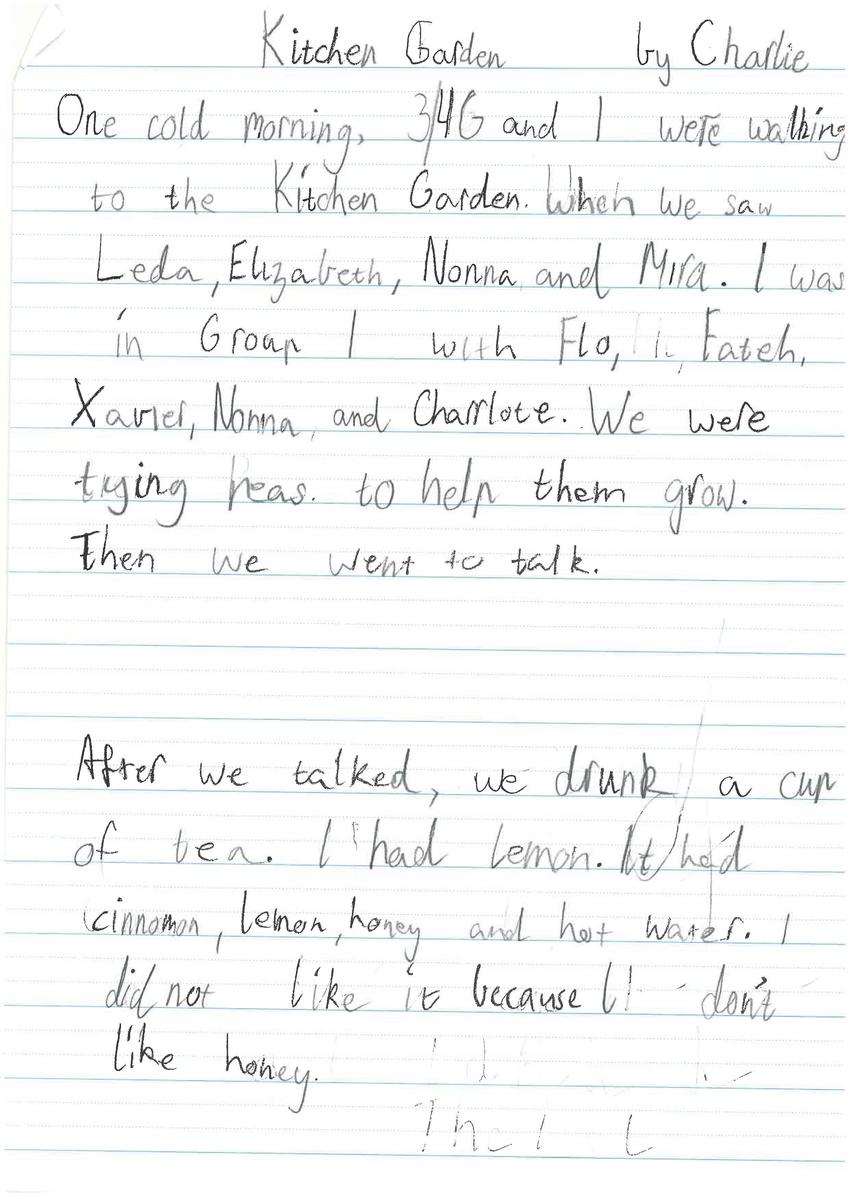 Kitchen Garden by Charlie
One cold morning, 3/4G and I were walking
to the Kitchen Garden. When we saw
Leda, Elizabeth, Nonna and Mira. I was
in Group 1 with Flo, Fateh,
Xavier, Nonna, and Charrlote. We were
tying peas. to help them grow.
Then we went to talk.
After we talked, we drunk a cup
of tea. I had lemon. It had
cinnomon, lemon, honey and hot water. I
did not like it because I don't
like honey.